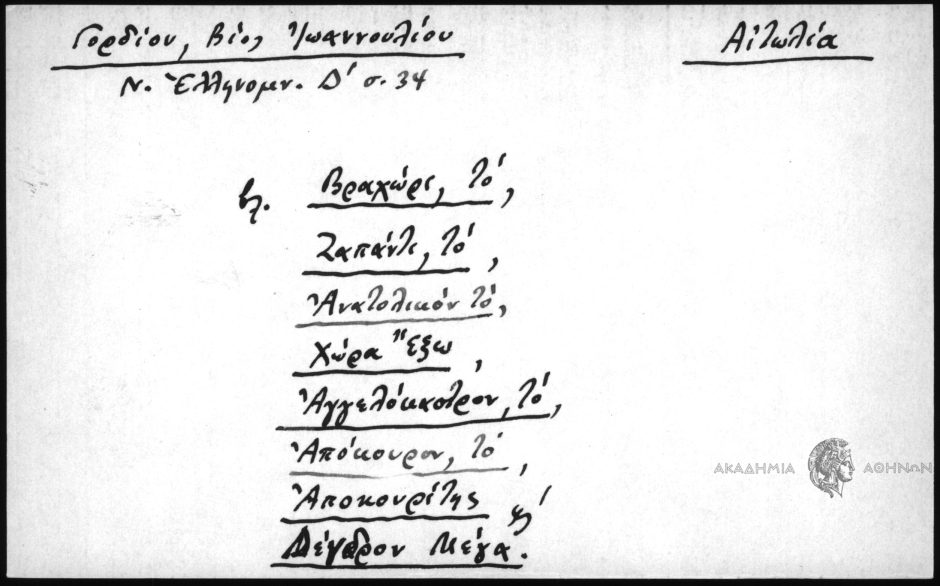 Γορδίου, Βίος Ἰωαννουλίου
Αἰτωλία
Ν. Ἑλληνομν. Δ' σ. 34
βλ. Βραχώρι, τό,
Ζαπάντι, τό,
Ἀνατολικόν τό,
Χώρα Ἔξω,
Ἀγγελόκαστρον, τό,
Ἀπόκουρον, τό,
Ἀποκουρίτης
Μέγα.
ΑΚΑΔΗΜΙΑ ΑΘΗΝΩΝ